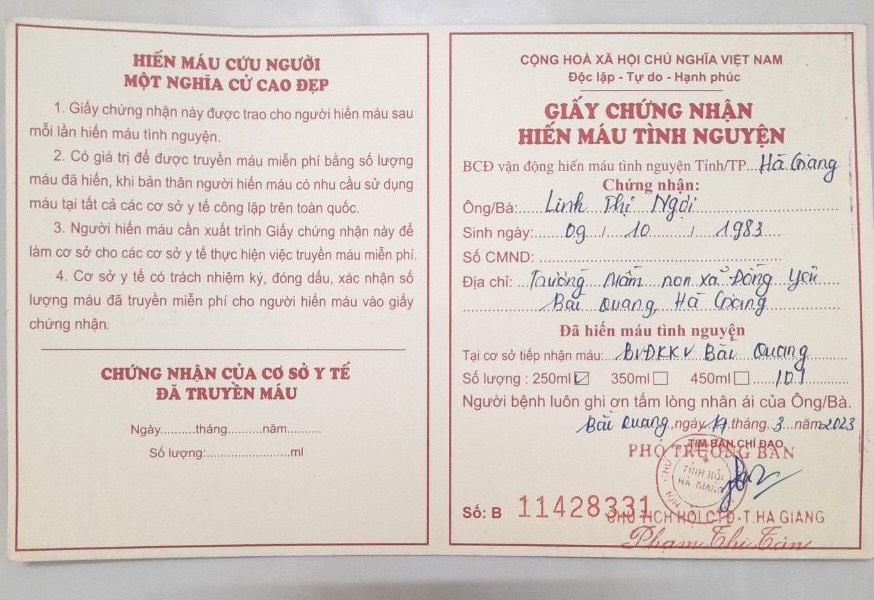 HIẾN MÁU CỨU NGƯỜI
MỘT NGHĨA CỬ CAO ĐẸP
1. Giấy chứng nhận này được trao cho người hiến máu sau
mỗi lần hiến máu tình nguyện.
2. Có giá trị để được truyền máu miễn phí bằng số lượng
máu đã hiến, khi bản thân người hiến máu có nhu cầu sử dụng
máu tại tất cả các cơ sở y tế công lập trên toàn quốc.
3. Người hiến máu cần xuất trình Giấy chứng nhận này để
làm cơ sở cho các cơ sở y tế thực hiện việc truyền máu miễn phí.
4. Cơ sở y tế có trách nhiệm ký, đóng dấu, xác nhận số
lượng máu đã truyền miễn phí cho người hiến máu vào giấy
chứng nhận.
CHỨNG NHẬN CỦA CƠ SỞ Y TẾ
ĐÃ TRUYỀN MÁU
Ngày..........tháng..........năm.........
Số lượng:.......................ml
CỘNG HOÀ XÃ HỘI CHỦ NGHĨA VIỆT NAM
Độc lập - Tự do - Hạnh phúc
GIẤY CHỨNG NHẬN
HIẾN MÁU TÌNH NGUYỆN
BCĐ vận động hiến máu tình nguyện Tỉnh/TP...Hà Giang
Chứng nhận:
Ông/Bà: Linh Thị Ngời
Sinh ngày: 09 / 10 / 1983
Số CMND:
Địa chỉ: Trường Mầm non xã Đồng Yên
Bắc Quang, Hà Giang
Đã hiến máu tình nguyện
Tại cơ sở tiếp nhận máu: BVĐKKV Bắc Quang
Số lượng : 250ml ☑ 350ml ☐ 450ml ☐
Người bệnh luôn ghi ơn tấm lòng nhân ái của Ông/Bà.
Bắc Quang, ngày tháng 3 năm 2023
T/M BAN CHỈ ĐẠO
PHÓ TRƯỞNG BAN
TỈNH HỘI
HÀ GIANG
Số: B 11428331
CHỦ TỊCH HỘI CTĐ-T.HÀ GIANG
Phạm Thị Tân